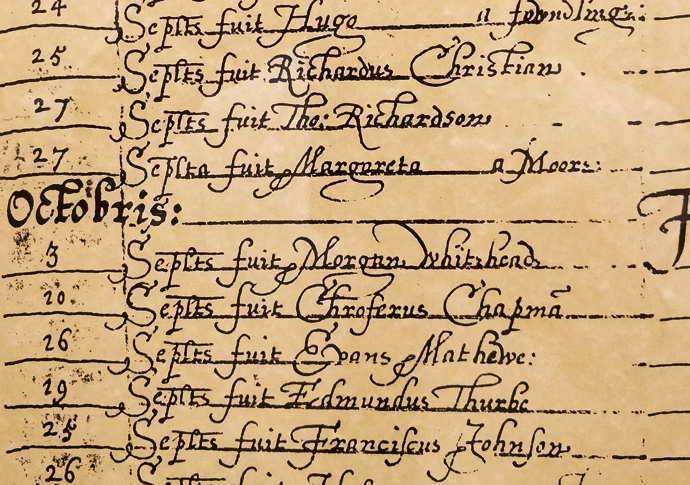 24 Seplts fuit Hugo a fowndling:
25 Seplts fuit Richardus Christian
27 Seplts fuit Tho: Richardson
27 Seplta fuit Margareta a Moore:
Octobris:
3 Seplts fuit Morgan Whithead
20 Seplts fuit Chroferus Chapmā
26 Seplts fuit Evans Mathewe:
19 Seplts fuit Edmundus Thurbe
25 Seplts fuit Franciscus Johnson
26